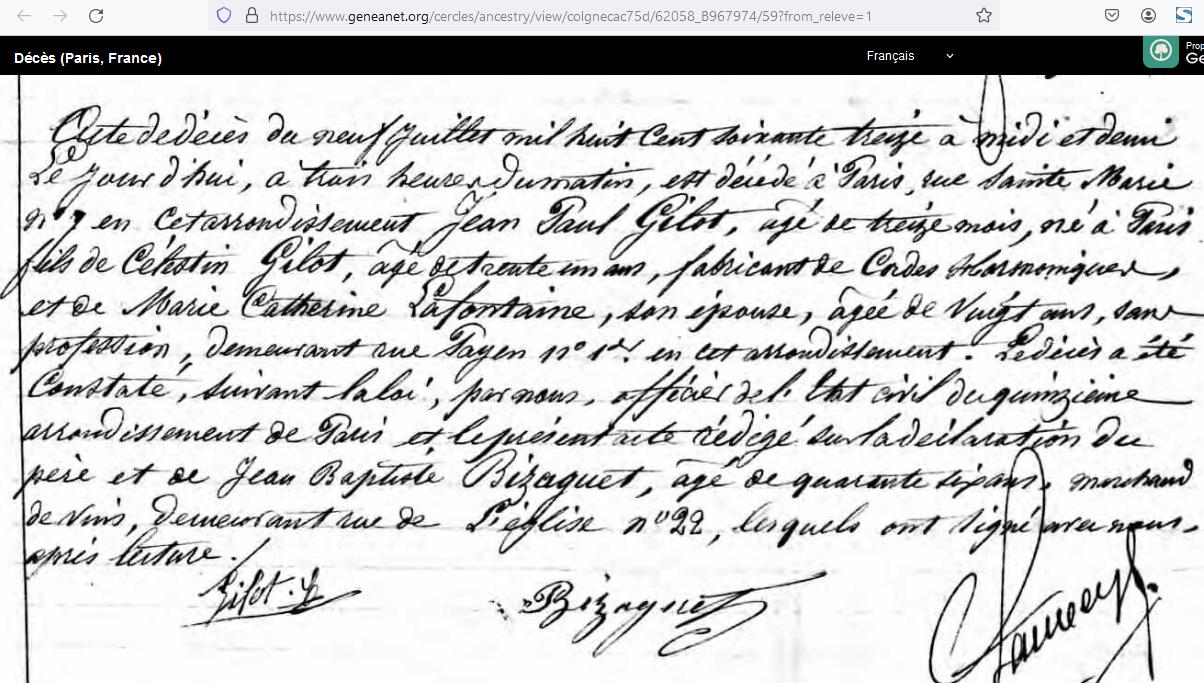 https://www.geneanet.org/cercles/ancestry/view/colgnecac75d/62058_B967974/59?from_releve=1
Décès (Paris, France)
Français
Prop
Ge
Acte de décès du neuf Juillet mil huit Cent soixante treize à midi et demi
Le jour d'hui, à trois heures du matin, est décédé à Paris, rue Sainte Marie
n° 7 en cet arrondissement Jean Paul Gilot, agé de treize mois, né à Paris
fils de Célestin Gilot, âgé de trente un ans, fabricant de Cordes Harmoniques,
et de Marie Catherine Lafontaine, son épouse, âgée de Vingt ans, sans
profession, demeurant rue Payen n° en cet arrondissement. Le décès a été
Constaté, suivant la loi, par nous, officier de l'Etat civil du quinzième
arrondissement de Paris et le présent acte rédigé sur la déclaration du
père et de Jean Baptiste Bizaguet, agé de quarante six ans, marchand
de vins, demeurant rue de L'église n° 22, lesquels ont signé avec nous
après lecture.
Gilot. Bizaguet